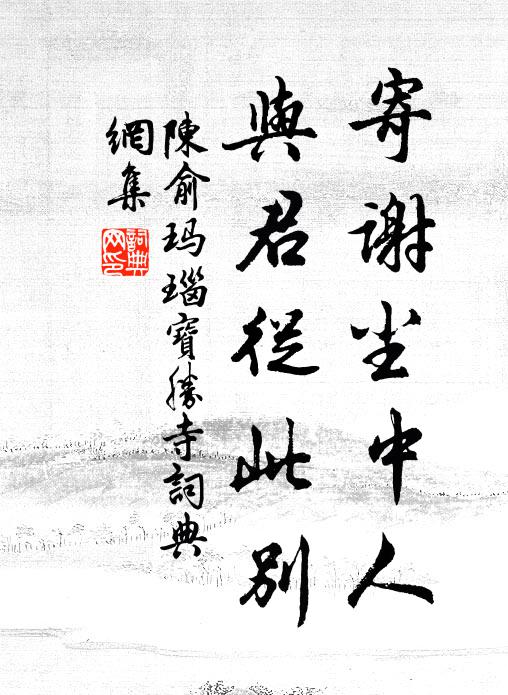 寄谢尘中人
與君從此別
陳俞玛瑙寶勝寺詞典
網集
詞典
网印